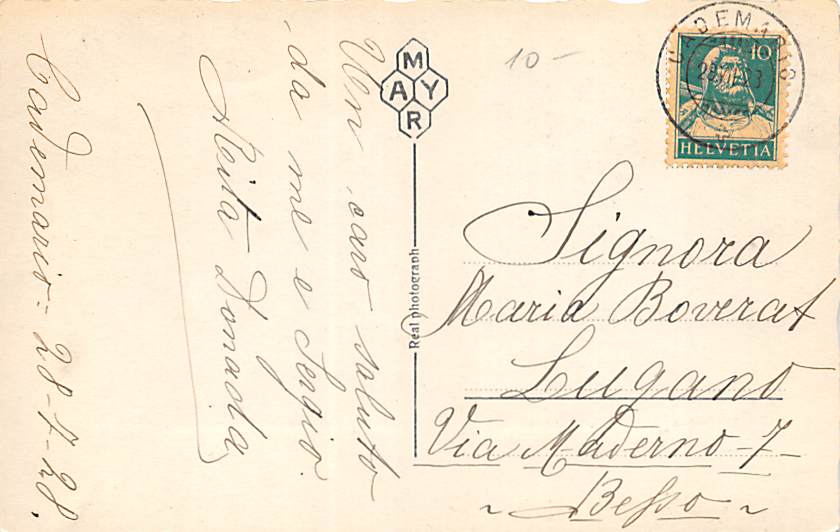 Cademario = 28-7-28.
Un caro saluto
da me e Sergio.
Donada
MAYR
Real photograph
10-
CADEMARIO
10
HELVETIA
Signora
Maria Boverat
Lugano
Via Maderno-7-
~ Besso ~